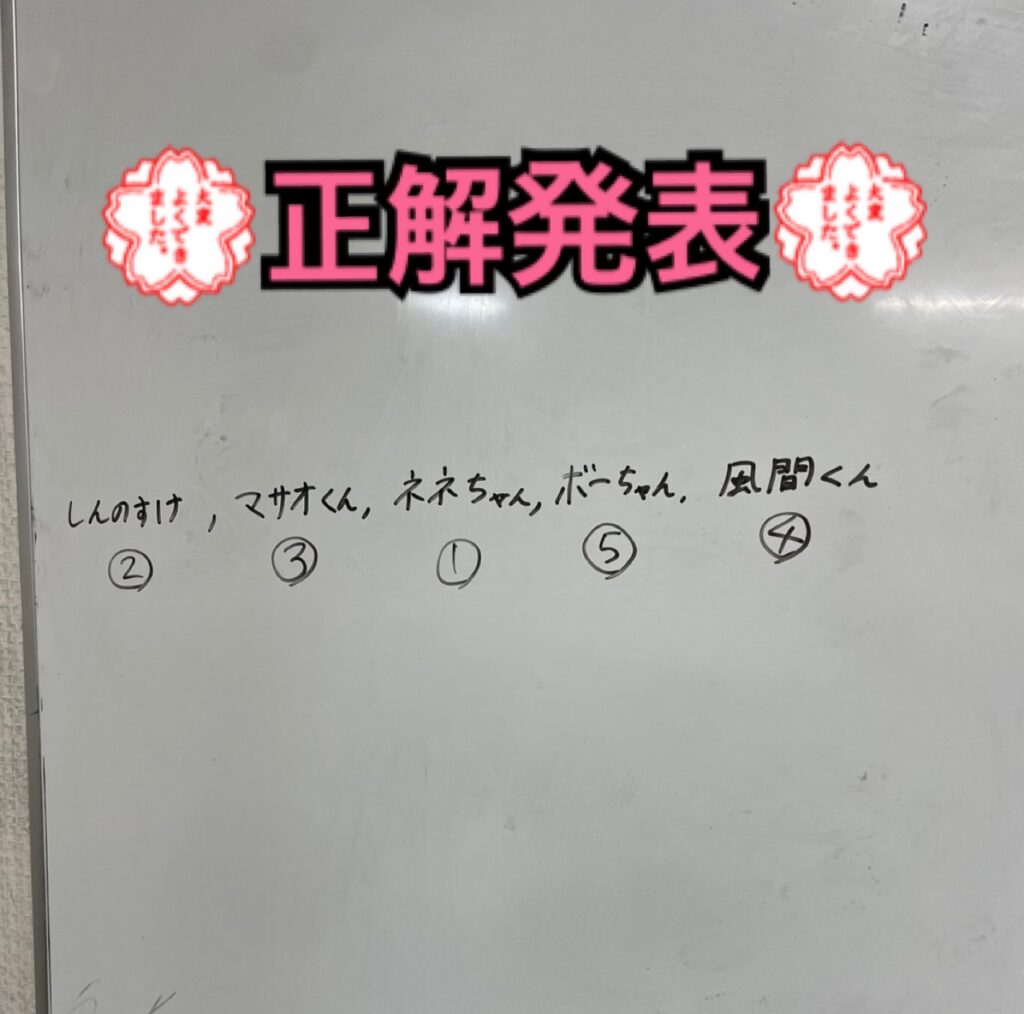 正解発表
大変
よくでき
ました。
大変
よくでき
ました。
しんのすけ, マサオくん, ネネちゃん, ボーちゃん, 風間くん
② ③ ① ⑤ ④